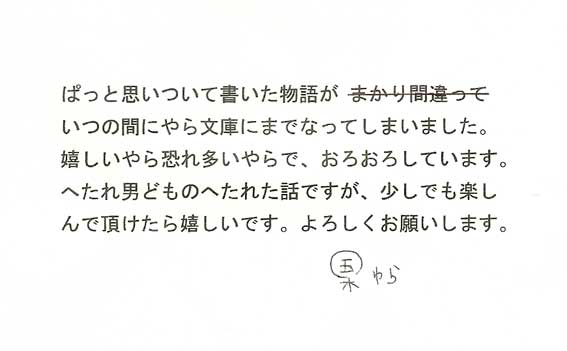 ぱっと思いついて書いた物語が まかり間違って
いつの間にやら文庫にまでなってしまいました。
嬉しいやら恐れ多いやらで、おろおろしています。
へたれ男どものへたれた話ですが、少しでも楽し
んで頂けたら嬉しいです。よろしくお願いします。